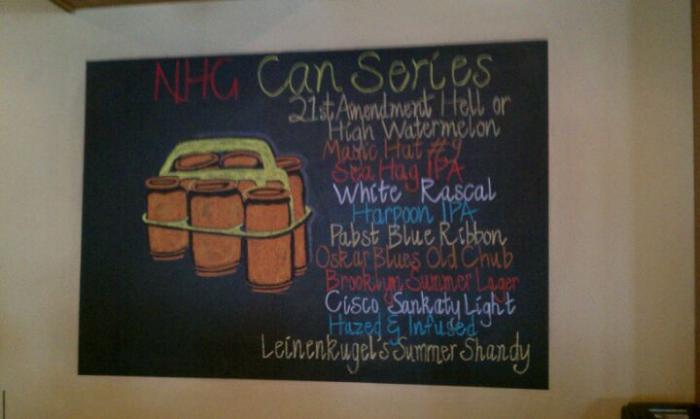 NHG Can Series
21st Amendment Hell or
High Watermelon
Magic Hat #9
Sea Hag IPA
White Rascal
Harpoon IPA
Pabst Blue Ribbon
Oskar Blues Old Chub
Brooklyn Summer Lager
Cisco Sankaty Light
Hazed & Infused
Leinenkugel's Summer Shandy